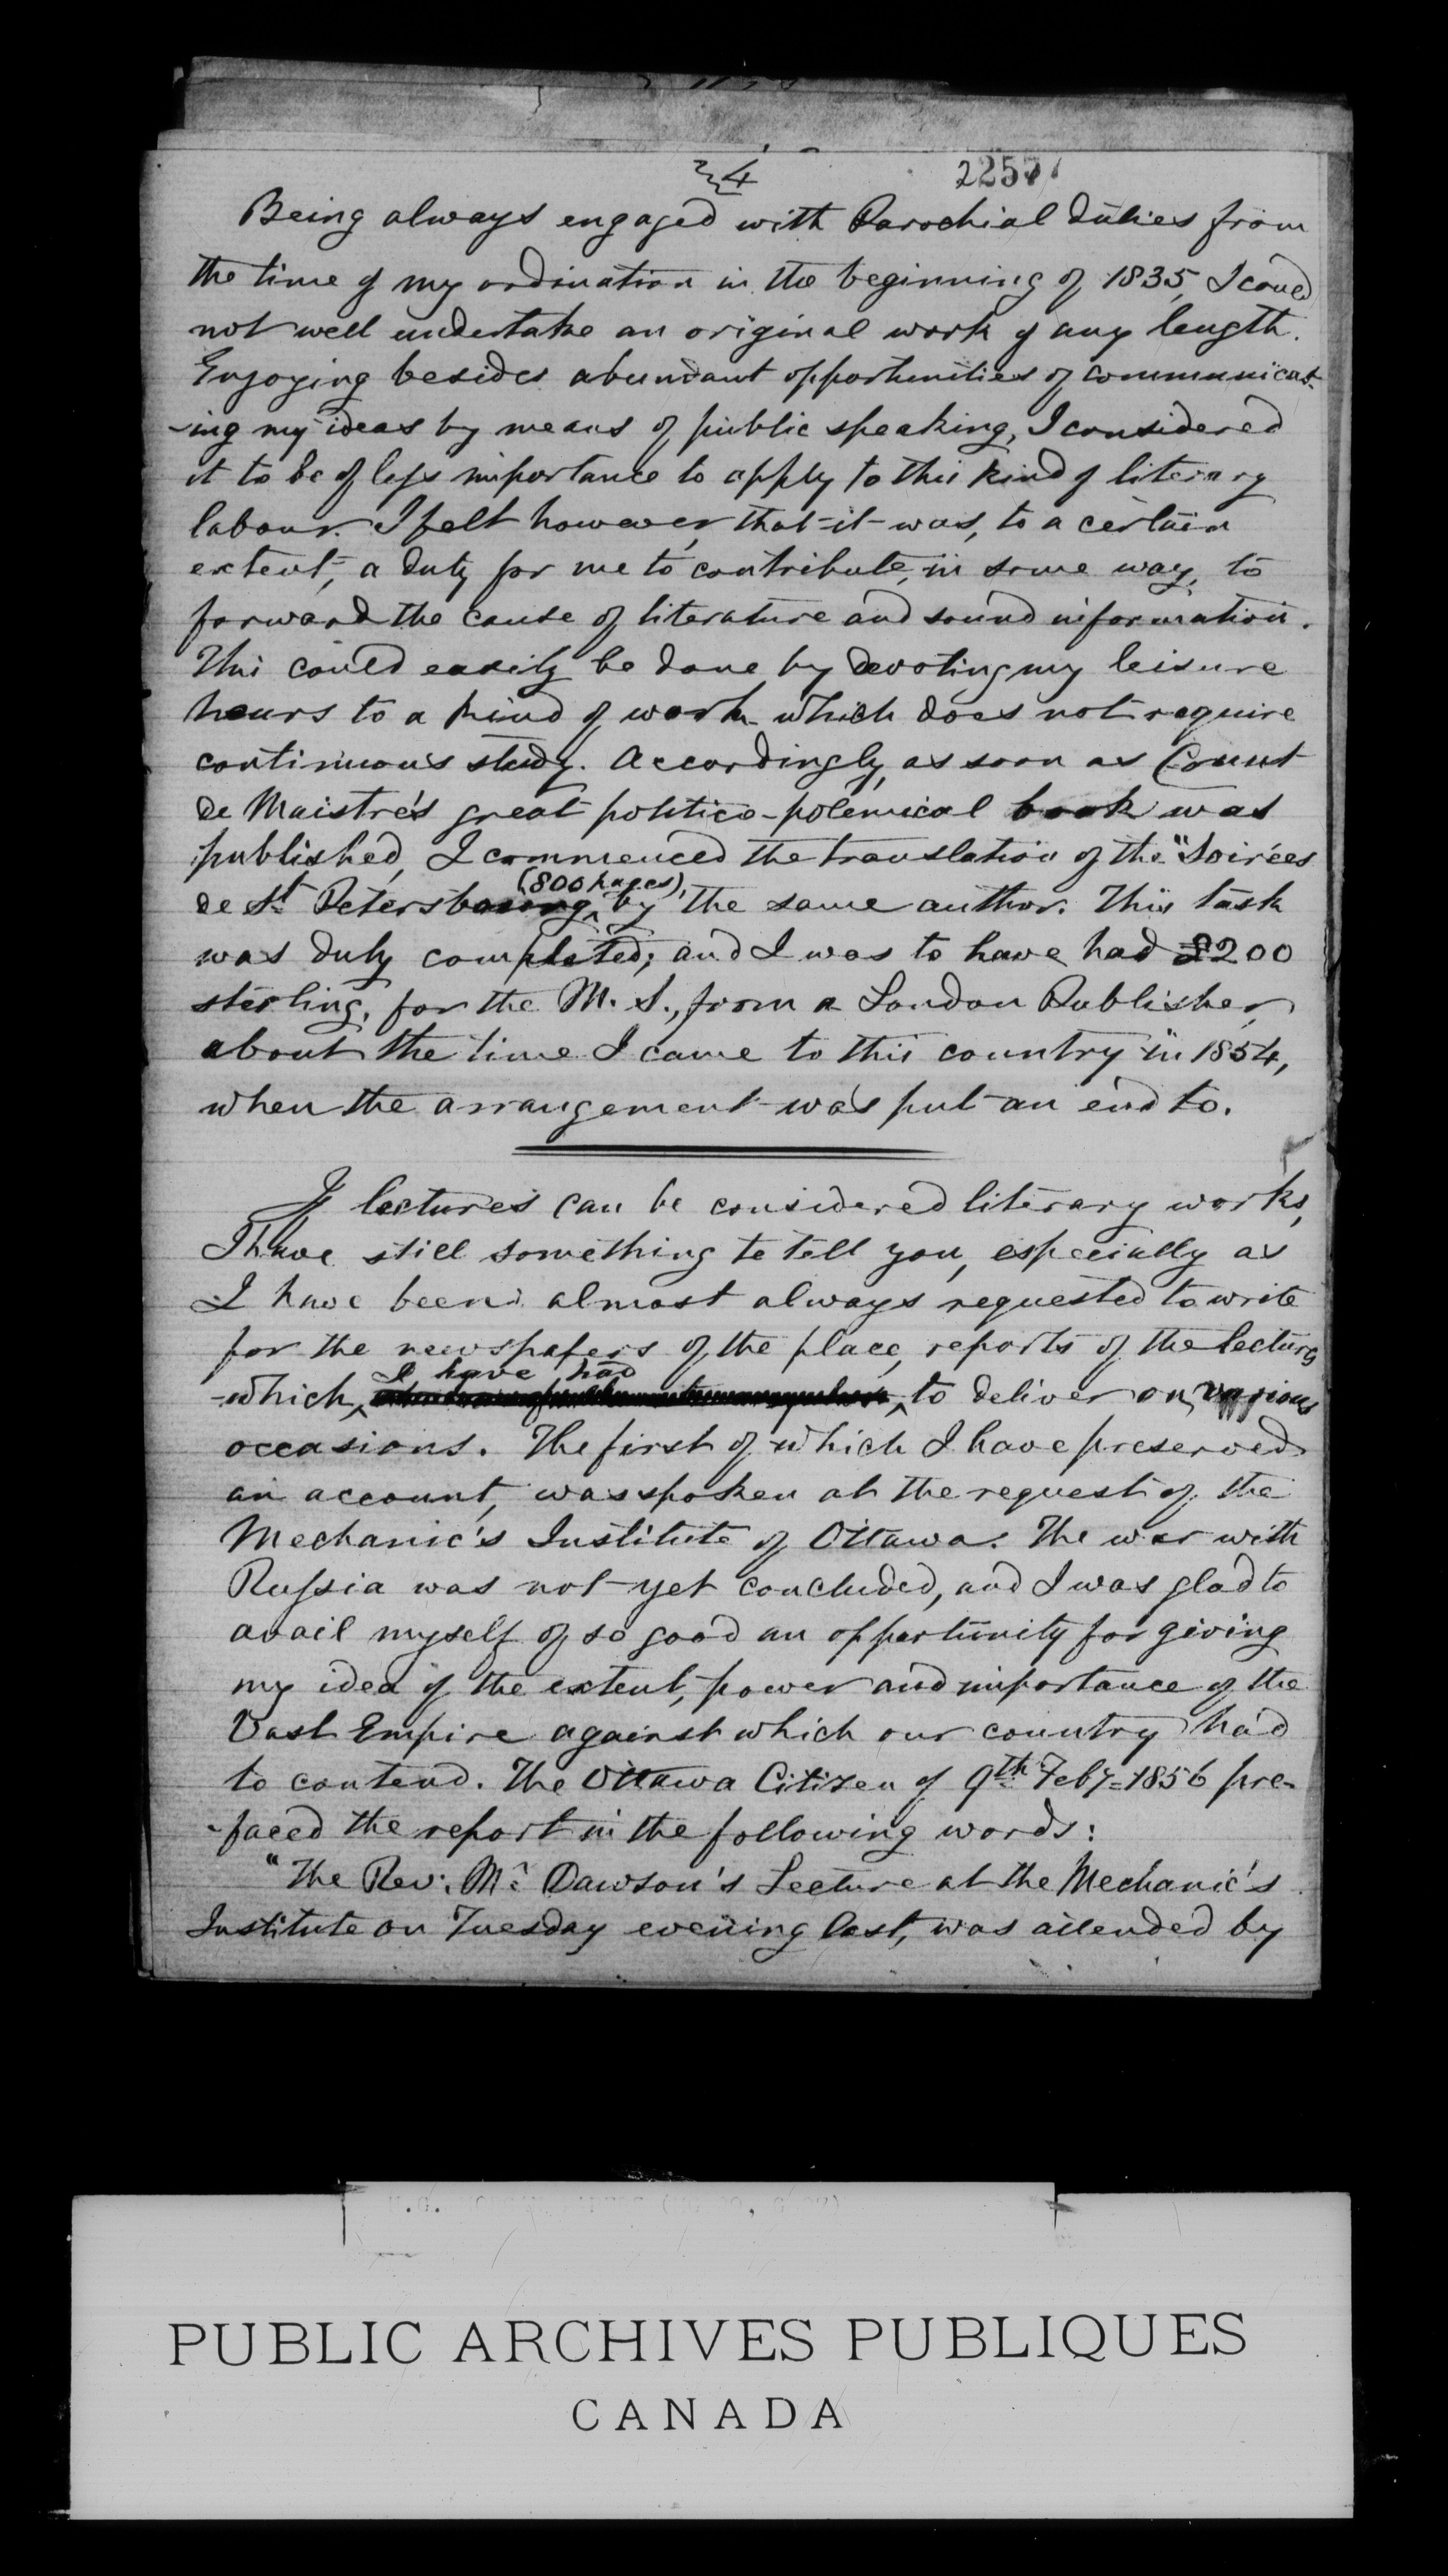 4
22577
Being always engaged with Parochial duties from
the time of my ordination in the beginning of 1835, I could
not well undertake an original work of any length.
Enjoying besides abundant opportunities of communicat-
-ing my ideas by means of public speaking, I considered
it to be of less importance to apply to this kind of literary
labour. I felt however, that it was, to a certain
extent, a duty for me to contribute, in some way, to
forward the cause of literature and sound information.
This could easily be done by devoting my leisure
hours to a kind of work which does not require
continuous study. Accordingly, as soon as Count
de Maistre's great politico-polemical book was
published, I commenced the translation of the "Soirées
(800 pages)
de St. Petersbourg, by the same author. This task
was duly completed; and I was to have had £200
sterling, for the M. S., from a London Publisher,
about the time I came to this country in 1854,
when the arrangement was put an end to.
If lectures can be considered literary works,
I have still something to tell you, especially as
I have been almost always requested to write
for the newspapers of the place, reports of the lectures
I have had
which, to deliver on various
occasions. The first of which I have preserved
an account, was spoken at the request of the
Mechanic's Institute of Ottawa. The war with
Russia was not yet concluded, and I was glad to
avail myself of so good an opportunity for giving
my idea of the extent, power and importance of the
Vast Empire against which our country had
to contend. The Ottawa Citizen of 9th Feby 1856 pre-
-faced the report in the following words:
"The Rev. Mr Dawson's Lecture at the Mechanic's
Institute on Tuesday evening last, was attended by
PUBLIC ARCHIVES PUBLIQUES
CANADA